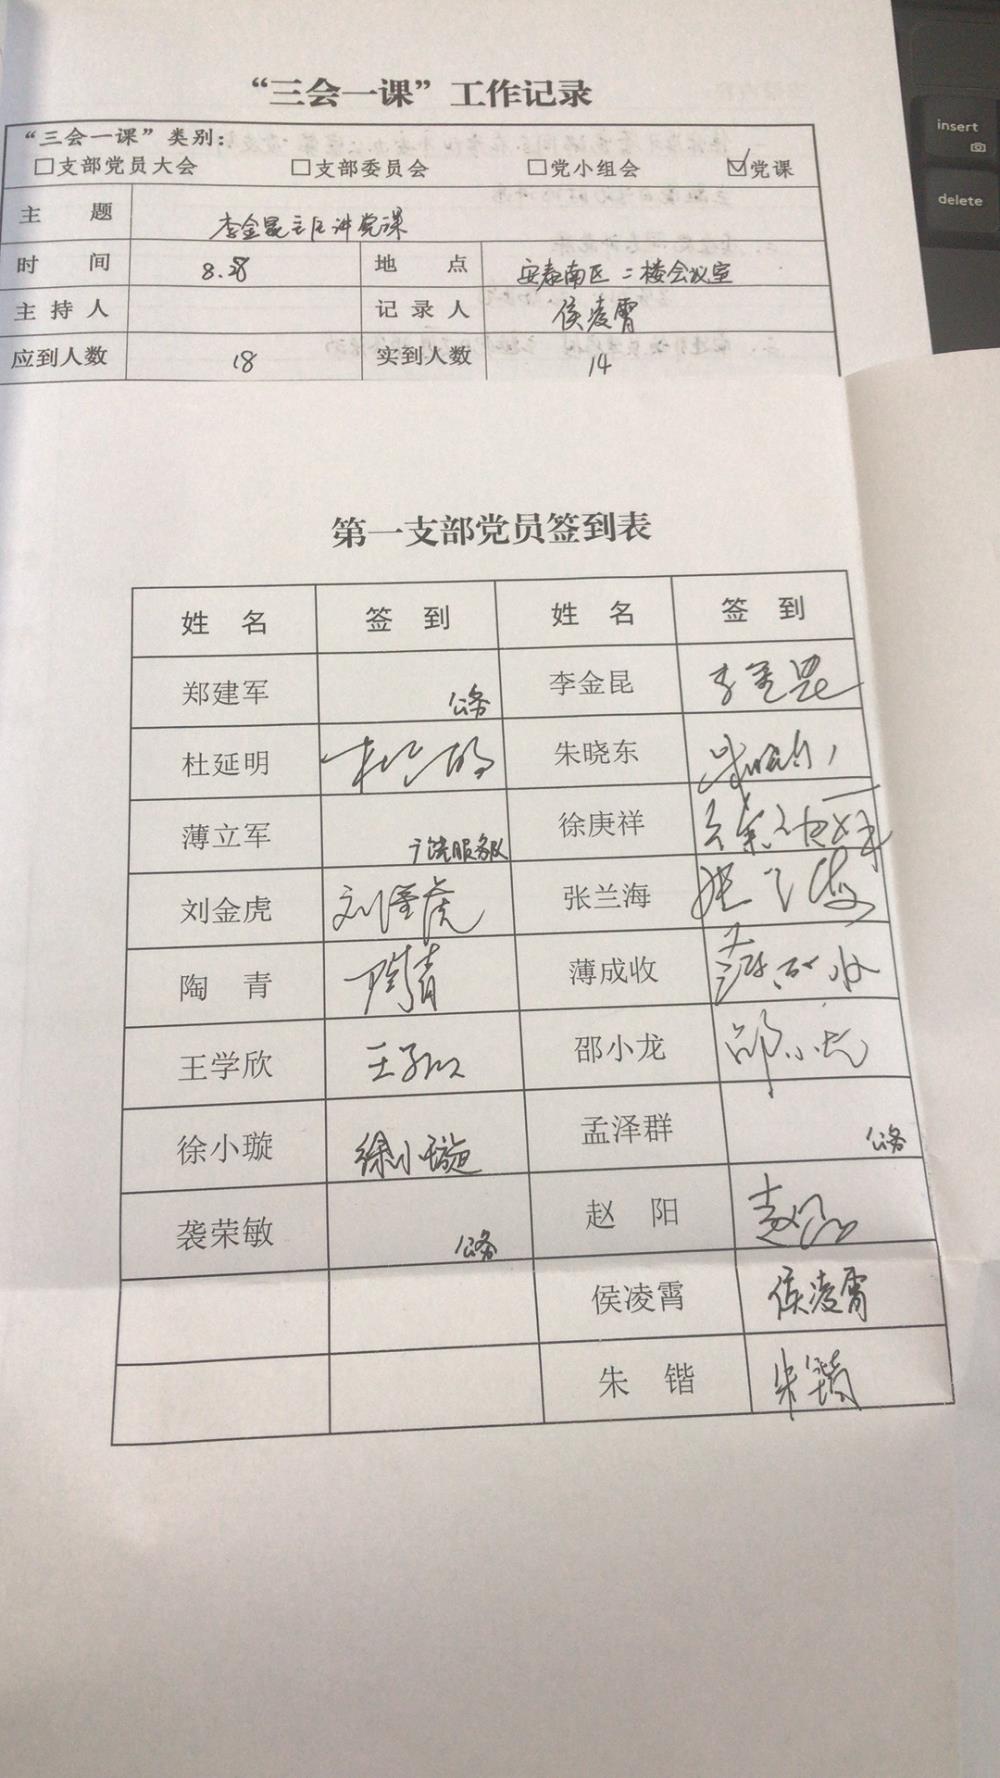 insert
delete
“三会一课”工作记录
“三会一课”类别：
□支部党员大会 □支部委员会 □党小组会 ☑党课
主 题 李金昆主任讲党课
时 间 8.28 地 点 安泰南区二楼会议室
主持人 记录人 侯凌霄
应到人数 18 实到人数 14
第一支部党员签到表
姓 名 签 到 姓 名 签 到
郑建军 公务 李金昆 李金昆
杜延明 杜延明 朱晓东 朱晓东
薄立军 服务队 徐庚祥 徐庚祥
刘金虎 刘金虎 张兰海 张兰海
陶 青 陶青 薄成收 薄成收
王学欣 王学欣 邵小龙 邵小龙
徐小璇 徐小璇 孟泽群 公务
袭荣敏 公务 赵 阳 赵阳
侯凌霄 侯凌霄
朱 锴 朱锴